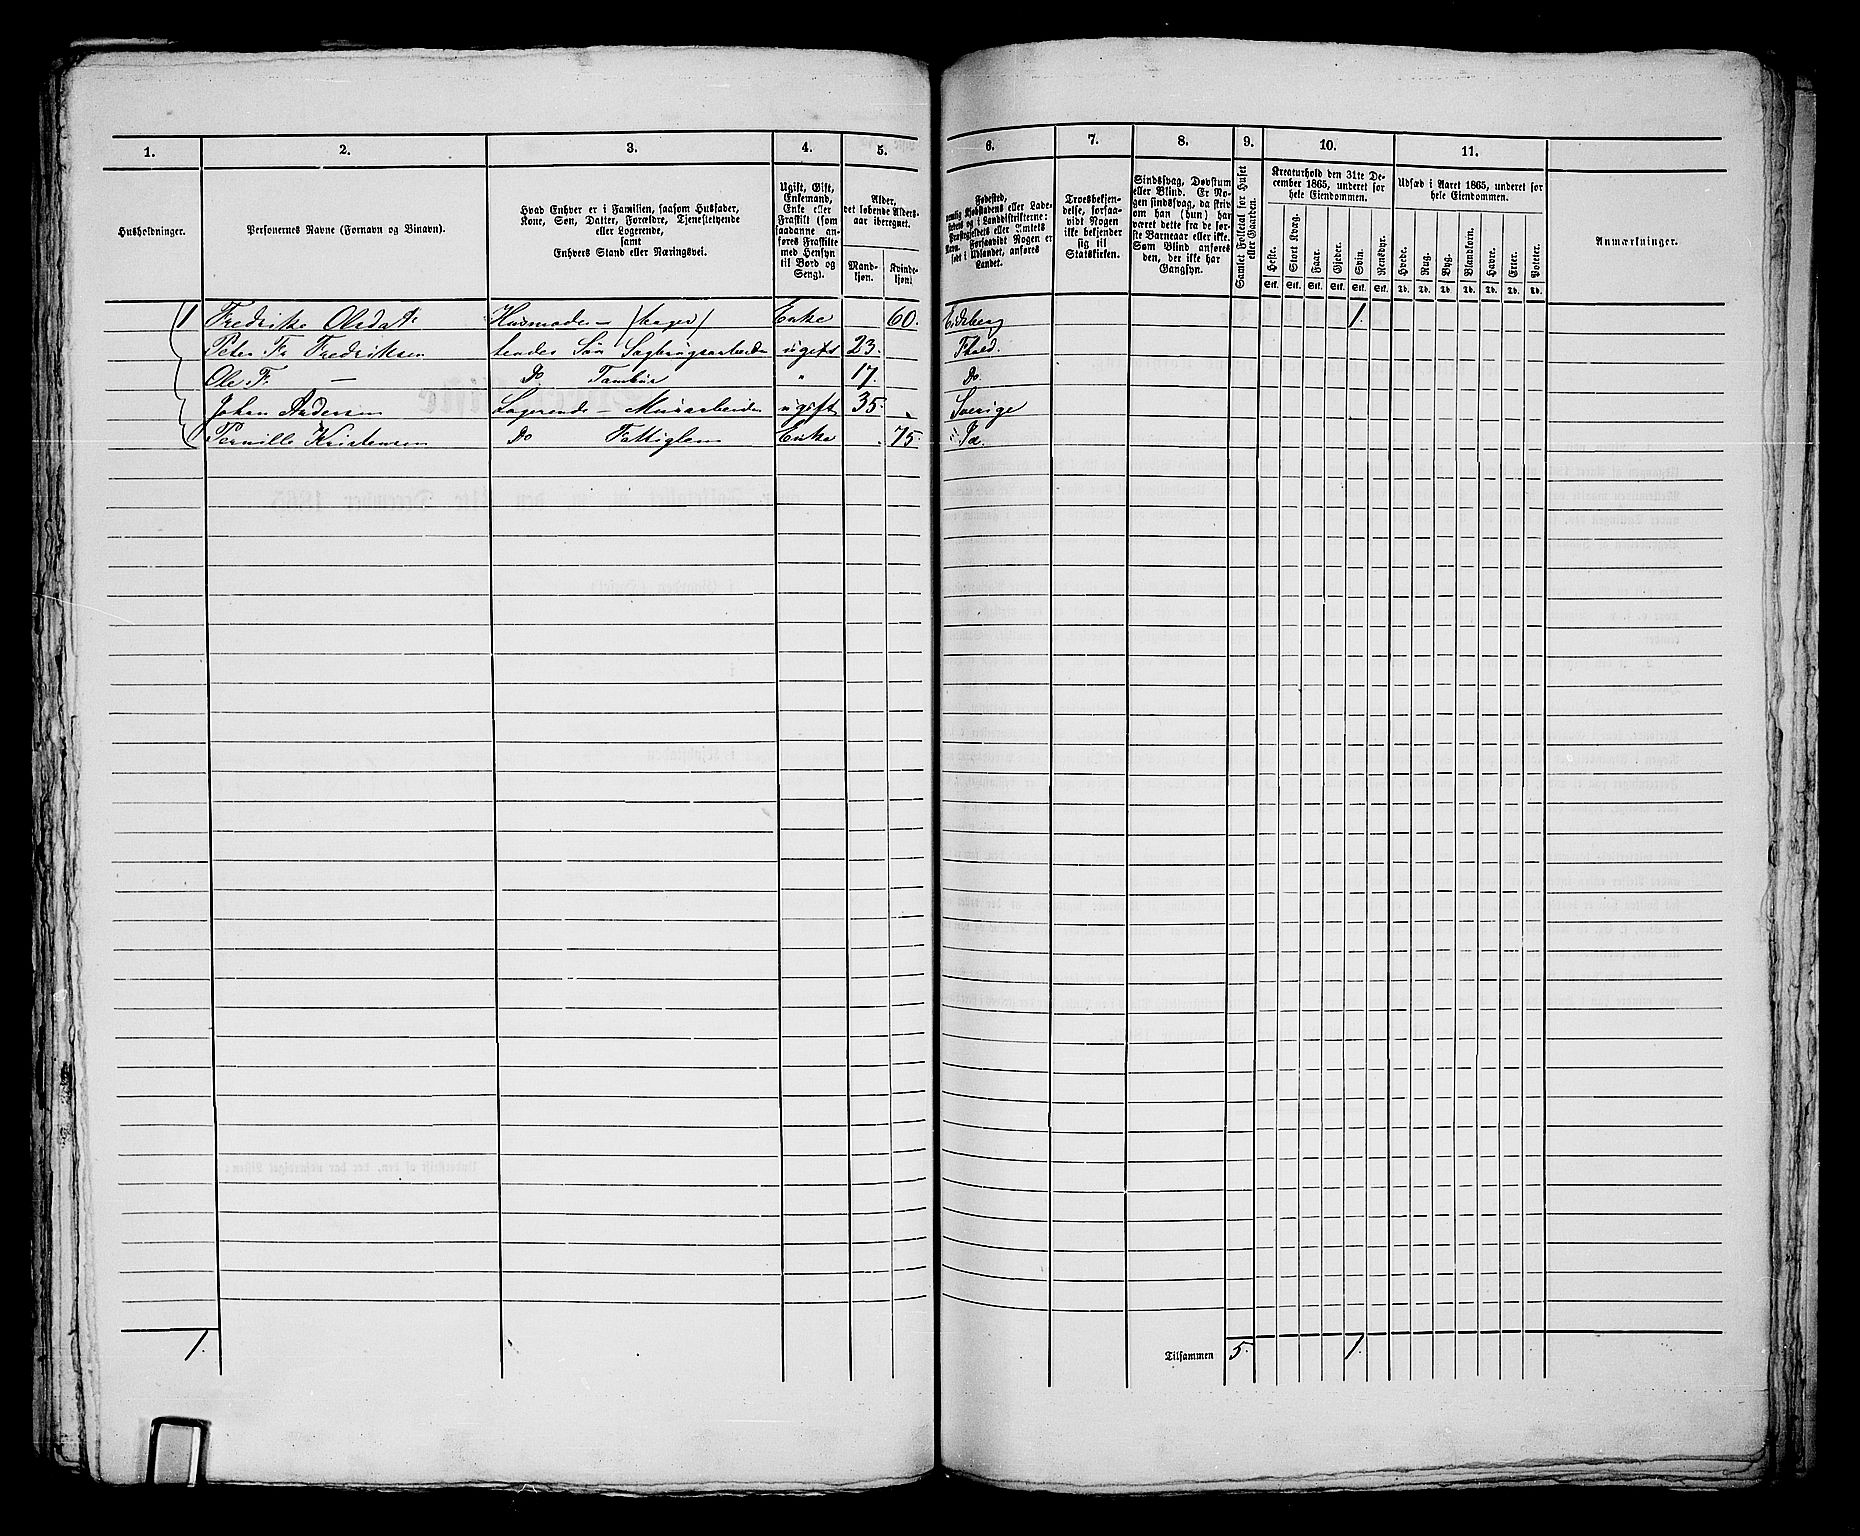 1. 2. 3. 4. 5. 6. 7. 8. 9. 10. 11.
Husholdninger.
Personernes Navne (Fornavn og Binavn).
Hvad Enhver er i Familien, saasom Husfader,
Kone, Søn, Datter, Forældre, Tjenestetyende
eller Logerende,
samt
Enhvers Stand eller Næringsvei.
Ugift, Gift,
Enkemand,
Enke eller
Fraskilt (som
saadanne an-
føres Fraskilte
med Hensyn
til Bord og
Seng).
Alder,
det løbende Alders-
aar iberegnet.
Mand-
kjøn.
Kvinde-
kjøn.
Fødested,
nemlig Kjøbstadens eller Lade-
stedets og i Landdistrikterne:
Præstegjeldets eller Amtets
Navn. Forsaavidt Nogen er
født i Udlandet, anføres
Landet.
Troesbekjen-
delse, forsaa-
vidt Nogen
ikke bekjender
sig til
Statskirken.
Sindssvag, Døvstum
eller Blind. Er No-
gen sindssvag, da skriv
om han (hun) har
været dette fra de før-
ste Barneaar eller ikke.
Som Blind anføres
den, der ikke har
Gangsyn.
Samlet Folketal for Huset
eller Gaarden.
Kreaturhold den 31te De-
cember 1865, underet for
hele Eiendommen.
Heste. Stort Kvæg. Faar. Gjeder. Svin. Rensdyr.
Stk. Stk. Stk. Stk. Stk. Stk.
Udsæd i Aaret 1865, underet for
hele Eiendommen.
Hvede. Rug. Byg. Blandkorn. Havre. Erter. Poteter.
Td. Td. Td. Td. Td. Td. Td.
Anmærkninger.
1 Fredrike Olsdatr Husmoder – (bager) Enke 60. Eidsberg 1.
Peter Fr Fredriksen hendes Søn Sagbrugsarbeider ugift 23. Fhald.
Ole F. — Do Tambur " 17. Do.
Johan Andersen Logerende – Murarbeider ugift 35. Sverige
Pernille Kristensen Do Fattiglem Enke 75.
1. Tilsammen 5. 1.